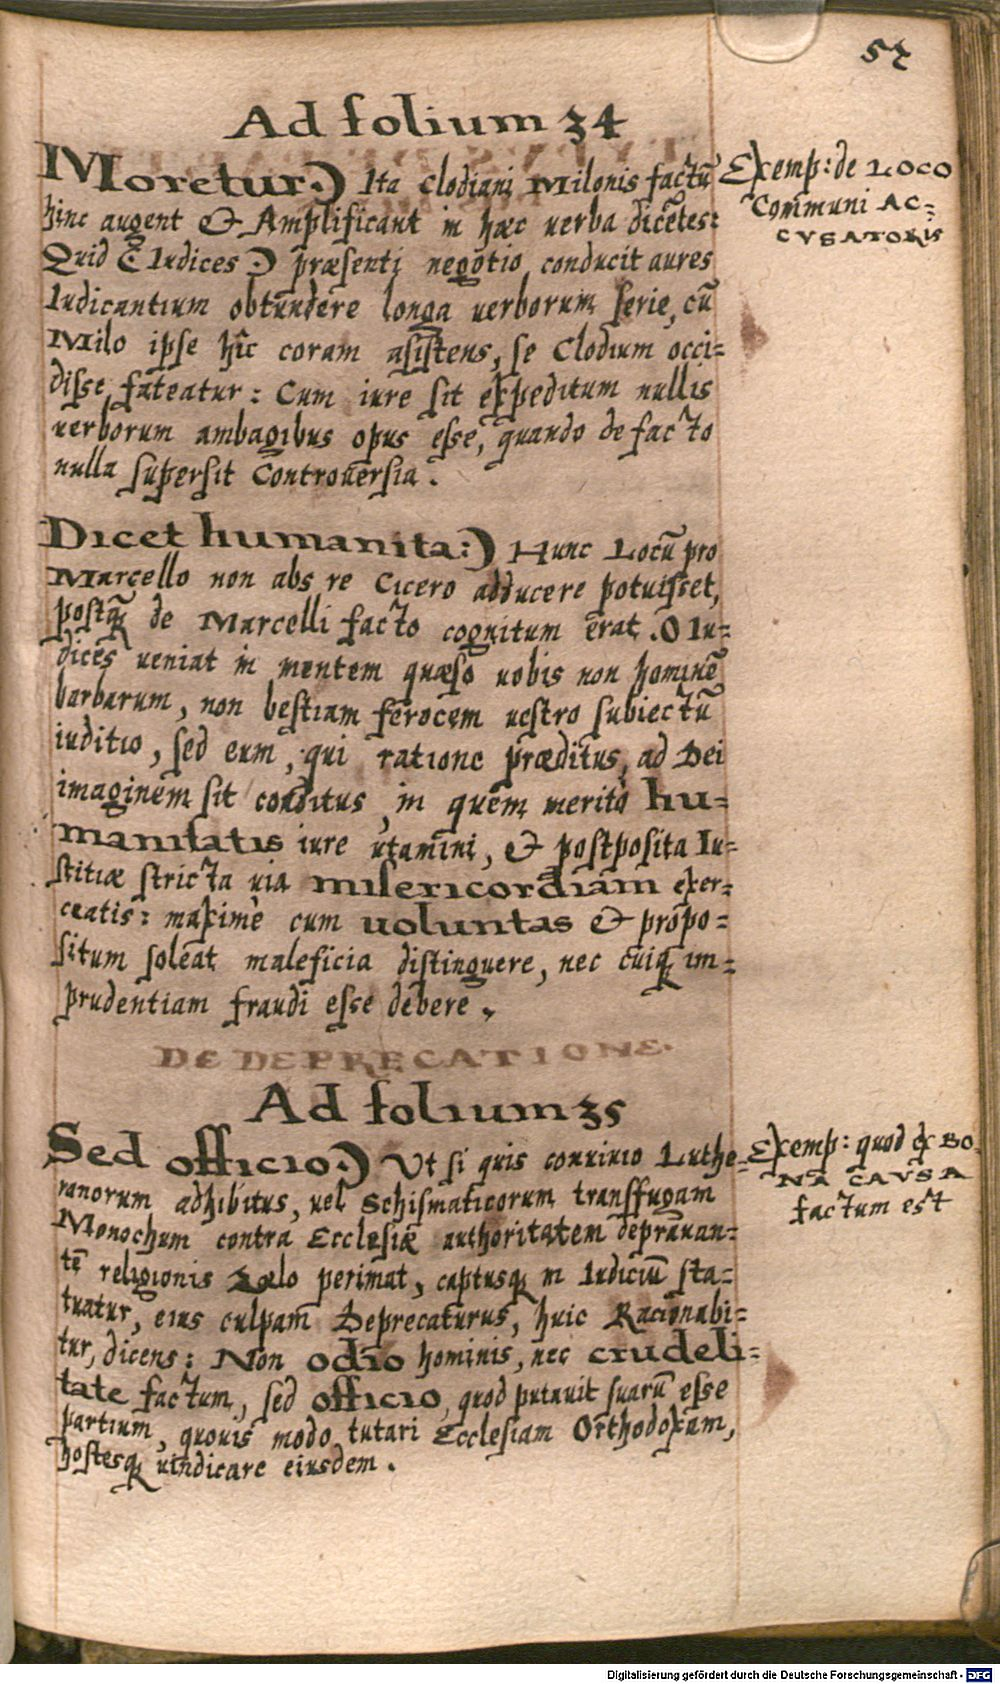 57
Ad folium 34
Moretur.) Ita Clodiani Milonis factū
hinc augent & Amplificant in hæc uerba dicētes:
Quid Iudices præsenti negotio conducit aures
Iudicantium obtundere longa uerborum serie, cū
Milo ipse hîc coram asistens, se Clodium occi=
disse fateatur: Cum iure sit expeditum nullis
uerborum ambagibus opus esse, quando de facto
nulla supersit Controuersia.
Exemp: de LOCO
Communi AC=
CVSATORIS
Dicet humanita:) Hunc Locū pro
Marcello non abs re Cicero adducere potuisset,
postq̄ de Marcelli facto cognitum erat. O Iu=
dices ueniat in mentem quæso uobis non hominē
barbarum, non bestiam ferocem uestro subiectū
iuditio, sed eum, qui ratione præditus, ad Dei
imaginem sit conditus, in quem meritò hu=
manitatis iure utamini, & postposita Iu=
stitiæ stricta uia misericordiam exer=
ceatis: maximè cum uoluntas & propo=
situm soleat maleficia distinguere, nec cuiq̨ im=
prudentiam fraudi esse debere.
DE DEPRECATIONE.
Ad folium 35
Sed officio.) Ut si quis conuiuio Luthe=
ranorum adhibitus, uel Schismaticorum transfugam
Monochum contra Ecclesiæ authoritatem deprauan=
tē religionis Zelo perimat, captusq̨ in Iudiciū sta=
tuatur, eius culpam Deprecaturus, huic Racionabi=
tur, dicens: Non odio hominis, nec crudeli=
tate factum, sed officio, quod putauit suarū esse
partium, quouis modo tutari Ecclesiam Orthodoxam,
hostesq̨ uindicare eiusdem.
Exemp: quod ex BO
NA CAVSA
factum est
Digitalisierung gefördert durch die Deutsche Forschungsgemeinschaft - DFG